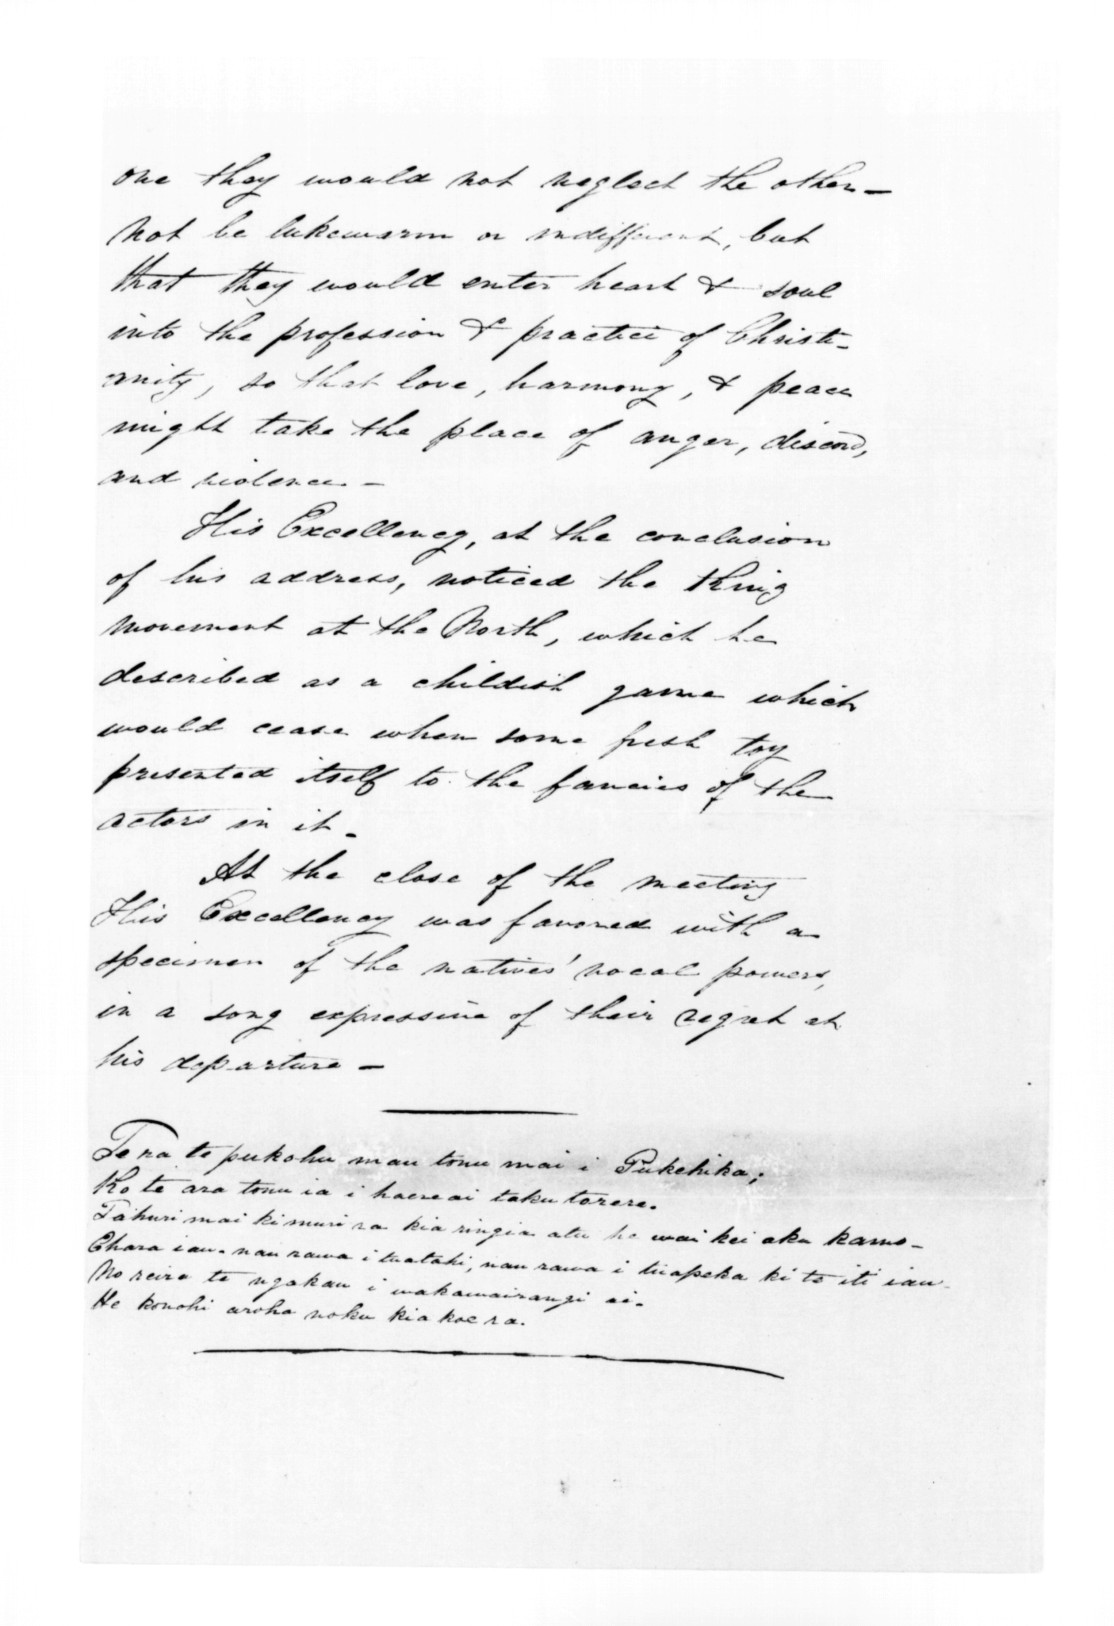 one they would not neglect the other —
not be lukewarm or indifferent, but
that they would enter heart & soul
into the profession & practice of Christi-
anity, so that love, harmony, & peace
might take the place of anger, discord,
and violence —
His Excellency, at the conclusion
of his address, noticed the King
movement at the North, which he
described as a childish game which
would cease when some fresh toy
presented itself to the fancies of the
actors in it —
At the close of the meeting
His Excellency was favored with a
specimen of the natives' vocal powers,
in a song expressive of their regret at
his departure —
Tera te pukohu mau tonu mai i Pukehika;
Ko te ara tonu ia i haere ai taku torere.
Tahuri mai ki muri ra kia ringia atu he wai kei aku kamo —
Ehara i au. nau rawa i tuatahi, nau rawa i tuapeka ki te iti i au.
No reira te ngakau i wakawairangi ai.
He konohi aroha noku kia koe ra.